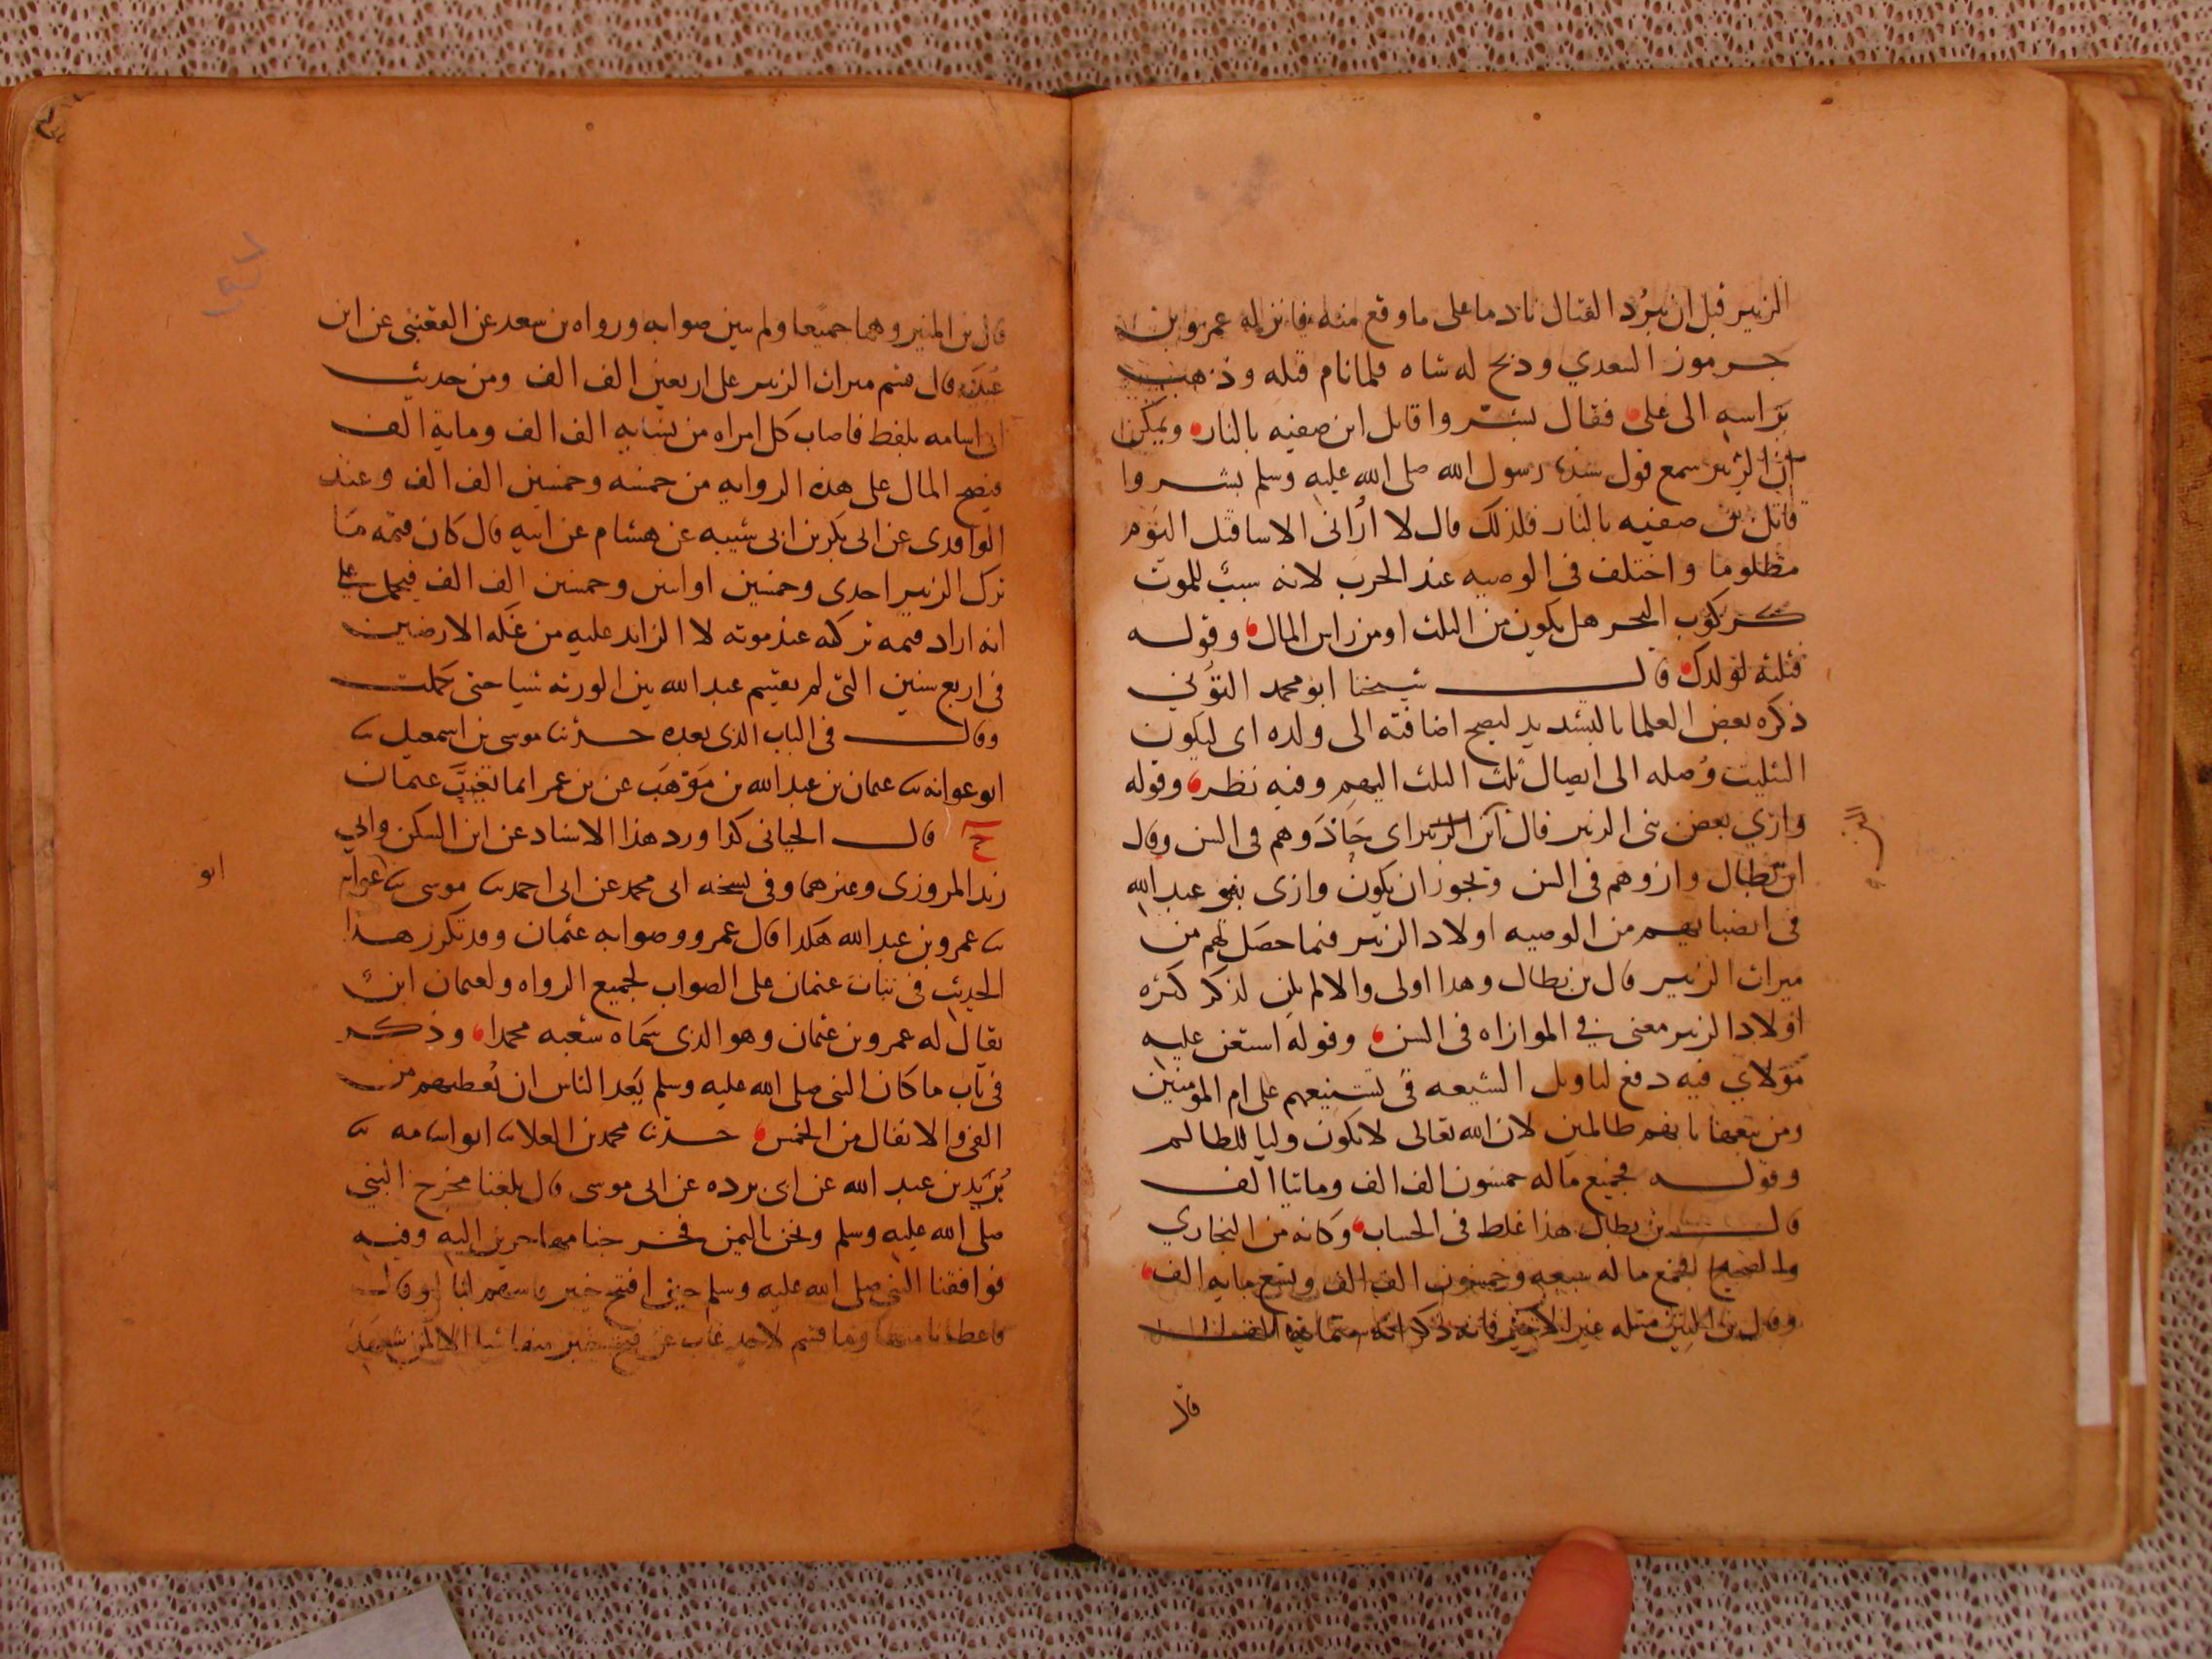 الزبير قبل ان يبرد القتال نادما على ما وقع منه فانزله عمرو بن
جرموز السعدي وذبح له شاه فلما نام قتله وذهب
براسه الى على فقال بشروا قاتل ابن صفيه بالنار ويمكن
ان الزبير سمع قول سيدنا رسول الله صلى الله عليه وسلم بشروا
قاتل بن صفيه بالنار فلذلك قال لا أراني الا ساقتل اليوم
مظلوما واختلف في الوصيه عند الحرب لانه سبب للموت
كركوب البحر هل يكون من الثلث او من راس المال وقوله
فثلثه لولدك قال شيخنا ابو محمد التوني
ذكره بعض العلما بالتشديد ليصح اضافته الى ولده اى ليكون
التثليث وصله الى ايصال ثلث الثلث اليهم وفيه نظر وقوله
وازي بعض بني الزبير قال ابن الزبير اى حاذوهم في السن وقال
ابن بطال وازوهم في السن ويجوز ان يكون وازى بنو عبد الله
في انصبايهم من الوصيه اولاد الزبير فيما حصل لهم من
ميراث الزبير قال بن بطال وهذا اولى والا لم يكن لذكر كثره
اولاد الزبير معنى في الموازاه في السن وقوله استعن عليه
مولاي فيه دفع لتاويل الشيعه في تشنيعهم على ام المومنين
ومن تبعها بانهم ظالمين لان الله تعالى لا يكون وليا للظالم
وقوله فجميع ماله خمسون الف الف ومائتا الف
قال بن بطال هذا غلط في الحساب وكانه من البخاري
والصحيح فجميع ماله سبعه وخمسون الف الف وتسع مايه الف
وقال بن المنير مثله غير انه ذكر انه ستمائه الف
قال
قال بن المنير وهما جميعا ولم يبين صوابه ورواه بن سعد عن القعنبي عن ابن
عيينه قال قسم ميراث الزبير على اربعين الف الف ومن حديث
ابى اسامه بلفظ فاصاب كل امراه من نسايه الف الف ومايه الف
فيصح المال على هذه الروايه من خمسه وخمسين الف الف وعند
الواقدى عن ابى بكر بن ابى شيبه عن هشام عن ابيه قال كان قيمه ما
ترك الزبير احدى وخمسين او اثنين وخمسين الف الف فيحمل على
انه اراد قيمه تركته عند موته لا الزايد عليه من غله الارضين
في اربع سنين التى لم يقسم عبد الله بين الورثه شيا حتى كملت
وقال في الباب الذى بعده حدثنا موسى بن اسمعيل ثنا
ابو عوانه ثنا عثمان بن عبد الله بن موهب عن بن عمر انما تغيب عثمان
ح قال الجيانى كذا ورد هذا الاسناد عن ابن السكن وابي
زيد المروزى وغيرهما وفى نسخه ابى محمد عن ابى احمد ثنا موسى ثنا ابو عوانه
ابو
ثنا عمرو بن عبد الله هكذا قال عمرو وصوابه عثمان وقد تكرر هذا
الحديث في ثبات عثمان على الصواب لجميع الرواه ولعثمان ابن
يقال له عمرو بن عثمان وهو الذى سماه شعبه محمدا وذكر
في باب ما كان النبى صلى الله عليه وسلم يعد الناس ان يعطيهم من
الفى والانفال من الخمس حدثنا محمد بن العلا ثنا ابو اسامه ثنا
بريد بن عبد الله عن ابى برده عن ابى موسى قال بلغنا مخرج النبي
صلى الله عليه وسلم ونحن باليمن فخرجنا مهاجرين اليه وفيه
فوافقنا النبى صلى الله عليه وسلم حين افتتح خيبر فاسهم لنا او قال
فاعطانا منها وما قسم لاحد غاب عن فتح خيبر منها شيا الا لمن شهد